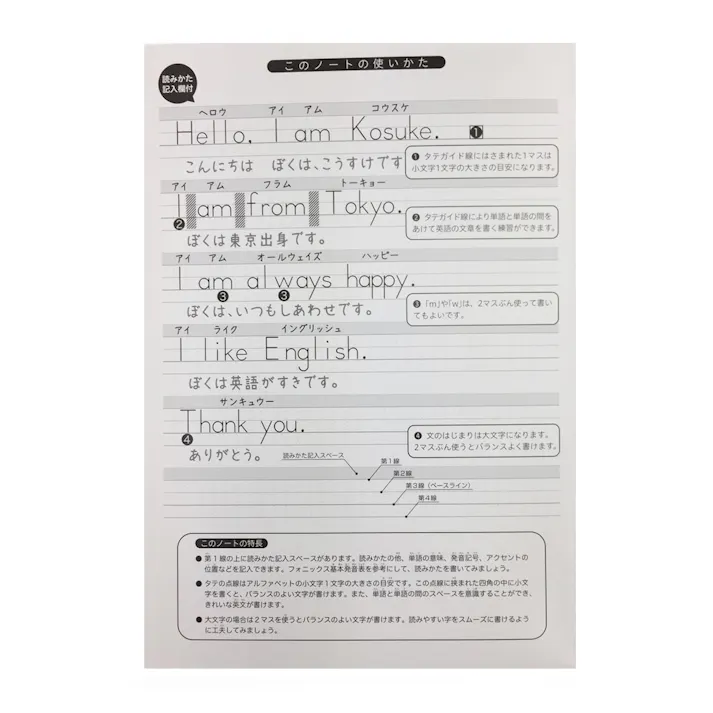 このノートの使いかた
読みかた
記入欄付
ヘロウ アイ アム コウスケ
Hello. I am Kosuke. ❶
こんにちは ぼくは、こうすけです
❶ タテガイド線にはさまれた1マスは
小文字1文字の大きさの目安になります。
アイ アム フラム トーキョー
I am from Tokyo.
❷
ぼくは東京出身です。
❷ タテガイド線により単語と単語の間を
あけて英語の文章を書く練習ができます。
アイ アム オールウェイズ ハッピー
I am always happy.
❸ ❸
ぼくは、いつもしあわせです。
❸ 「m」や「w」は、2マスぶん使って書い
てもよいです。
アイ ライク イングリッシュ
I like English.
ぼくは英語がすきです。
サンキュウー
Thank you.
❹
ありがとう。
❹ 文のはじまりは大文字になります。
2マスぶん使うとバランスよく書けます。
読みかた記入スペース
第1線
第2線
第3線(ベースライン)
第4線
このノートの特長
● 第1線の上に読みかた記入スペースがあります。読みかたの他、単語の意味、発音記号、アクセントの
位置などを記入できます。フォニックス基本発音表を参考にして、読みかたを書いてみましょう。
● タテの点線はアルファベットの小文字1文字の大きさの目安です。この点線に挟まれた四角の中に小文
字を書くと、バランスのよい文字が書けます。また、単語と単語の間のスペースを意識することができ、
きれいな英文が書けます。
● 大文字の場合は2マスを使うとバランスのよい文字が書けます。読みやすい字をスムーズに書けるよう
に工夫してみましょう。